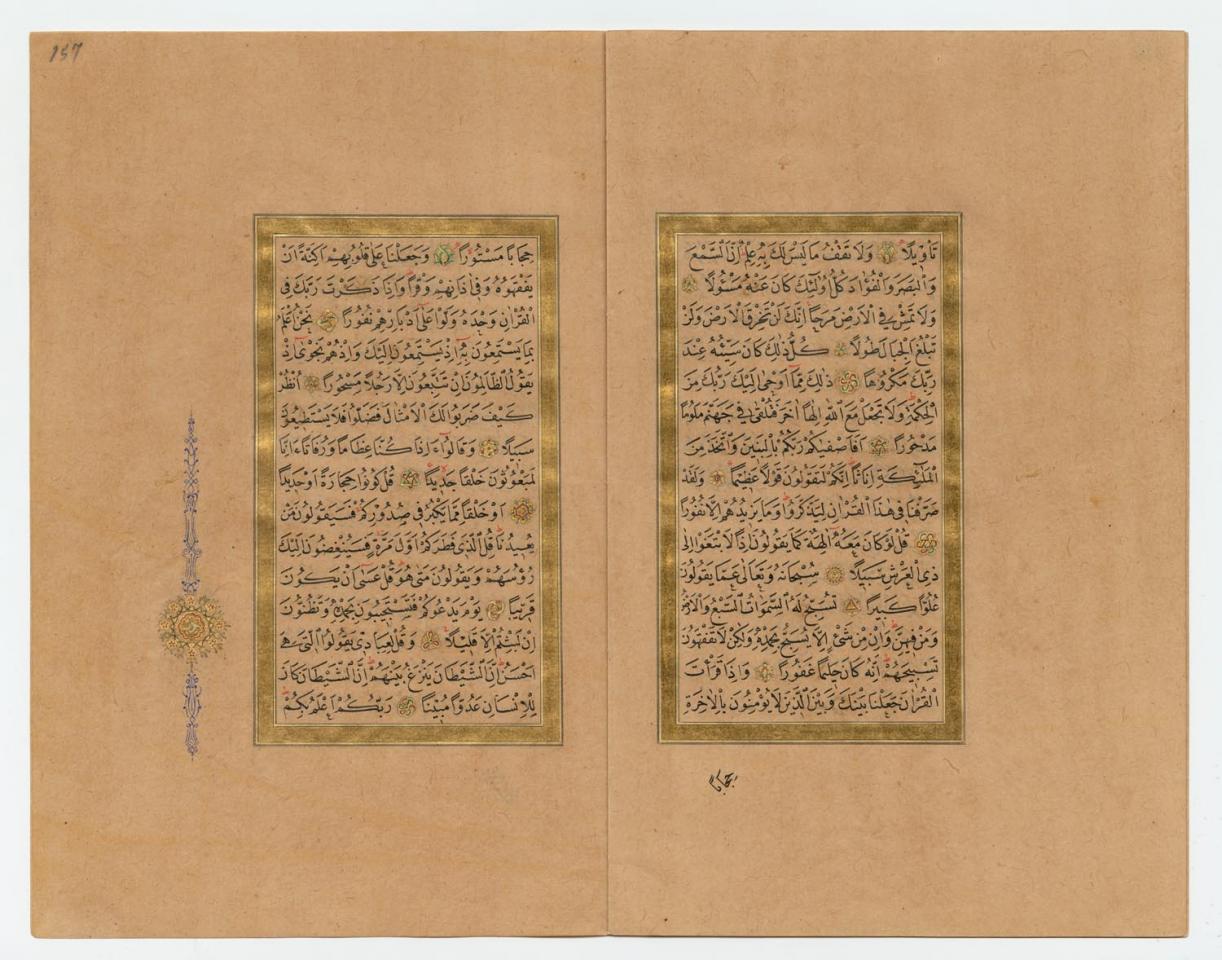 تَأْوِيلًا وَلَا تَقْفُ مَا لَيْسَ لَكَ بِهِ عِلْمٌ اِنَّ السَّمْعَ
وَالْبَصَرَ وَالْفُؤَادَ كُلُّ اُولٰئِكَ كَانَ عَنْهُ مَسْئُولًا
وَلَا تَمْشِ فِي الْاَرْضِ مَرَحًا اِنَّكَ لَنْ تَخْرِقَ الْاَرْضَ وَلَنْ
تَبْلُغَ الْجِبَالَ طُولًا كُلُّ ذٰلِكَ كَانَ سَيِّئُهُ عِنْدَ
رَبِّكَ مَكْرُوهًا ذٰلِكَ مِمَّا اَوْحٰى اِلَيْكَ رَبُّكَ مِنَ
الْحِكْمَةِ وَلَا تَجْعَلْ مَعَ اللّٰهِ اِلٰهًا اٰخَرَ فَتُلْقٰى فِي جَهَنَّمَ مَلُومًا
مَدْحُورًا اَفَاَصْفٰيكُمْ رَبُّكُمْ بِالْبَنِينَ وَاتَّخَذَ مِنَ
الْمَلٰئِكَةِ اِنَاثًا اِنَّكُمْ لَتَقُولُونَ قَوْلًا عَظِيمًا وَلَقَدْ
صَرَّفْنَا فِي هٰذَا الْقُرْاٰنِ لِيَذَّكَّرُوا وَمَا يَزِيدُهُمْ اِلَّا نُفُورًا
قُلْ لَوْ كَانَ مَعَهُ اٰلِهَةٌ كَمَا يَقُولُونَ اِذًا لَابْتَغَوْا اِلٰى
ذِي الْعَرْشِ سَبِيلًا سُبْحَانَهُ وَتَعَالٰى عَمَّا يَقُولُونَ
عُلُوًّا كَبِيرًا تُسَبِّحُ لَهُ السَّمٰوَاتُ السَّبْعُ وَالْاَرْضُ
وَمَنْ فِيهِنَّ وَاِنْ مِنْ شَيْءٍ اِلَّا يُسَبِّحُ بِحَمْدِهِ وَلٰكِنْ لَا تَفْقَهُونَ
تَسْبِيحَهُمْ اِنَّهُ كَانَ حَلِيمًا غَفُورًا وَاِذَا قَرَأْتَ
الْقُرْاٰنَ جَعَلْنَا بَيْنَكَ وَبَيْنَ الَّذِينَ لَا يُؤْمِنُونَ بِالْاٰخِرَةِ
حِجَابًا
157
حِجَابًا مَسْتُورًا وَجَعَلْنَا عَلٰى قُلُوبِهِمْ اَكِنَّةً اَنْ
يَفْقَهُوهُ وَفِي اٰذَانِهِمْ وَقْرًا وَاِذَا ذَكَرْتَ رَبَّكَ فِي
الْقُرْاٰنِ وَحْدَهُ وَلَّوْا عَلٰى اَدْبَارِهِمْ نُفُورًا نَحْنُ اَعْلَمُ
بِمَا يَسْتَمِعُونَ بِهِ اِذْ يَسْتَمِعُونَ اِلَيْكَ وَاِذْ هُمْ نَجْوٰى اِذْ
يَقُولُ الظَّالِمُونَ اِنْ تَتَّبِعُونَ اِلَّا رَجُلًا مَسْحُورًا اُنْظُرْ
كَيْفَ ضَرَبُوا لَكَ الْاَمْثَالَ فَضَلُّوا فَلَا يَسْتَطِيعُونَ
سَبِيلًا وَقَالُوا ءَاِذَا كُنَّا عِظَامًا وَرُفَاتًا ءَاِنَّا
لَمَبْعُوثُونَ خَلْقًا جَدِيدًا قُلْ كُونُوا حِجَارَةً اَوْ حَدِيدًا
اَوْ خَلْقًا مِمَّا يَكْبُرُ فِي صُدُورِكُمْ فَسَيَقُولُونَ مَنْ
يُعِيدُنَا قُلِ الَّذِي فَطَرَكُمْ اَوَّلَ مَرَّةٍ فَسَيُنْغِضُونَ اِلَيْكَ
رُؤُسَهُمْ وَيَقُولُونَ مَتٰى هُوَ قُلْ عَسٰى اَنْ يَكُونَ
قَرِيبًا يَوْمَ يَدْعُوكُمْ فَتَسْتَجِيبُونَ بِحَمْدِهِ وَتَظُنُّونَ
اِنْ لَبِثْتُمْ اِلَّا قَلِيلًا وَقُلْ لِعِبَادِي يَقُولُوا الَّتِي هِيَ
اَحْسَنُ اِنَّ الشَّيْطَانَ يَنْزَغُ بَيْنَهُمْ اِنَّ الشَّيْطَانَ كَانَ
لِلْاِنْسَانِ عَدُوًّا مُبِينًا رَبُّكُمْ اَعْلَمُ بِكُمْ